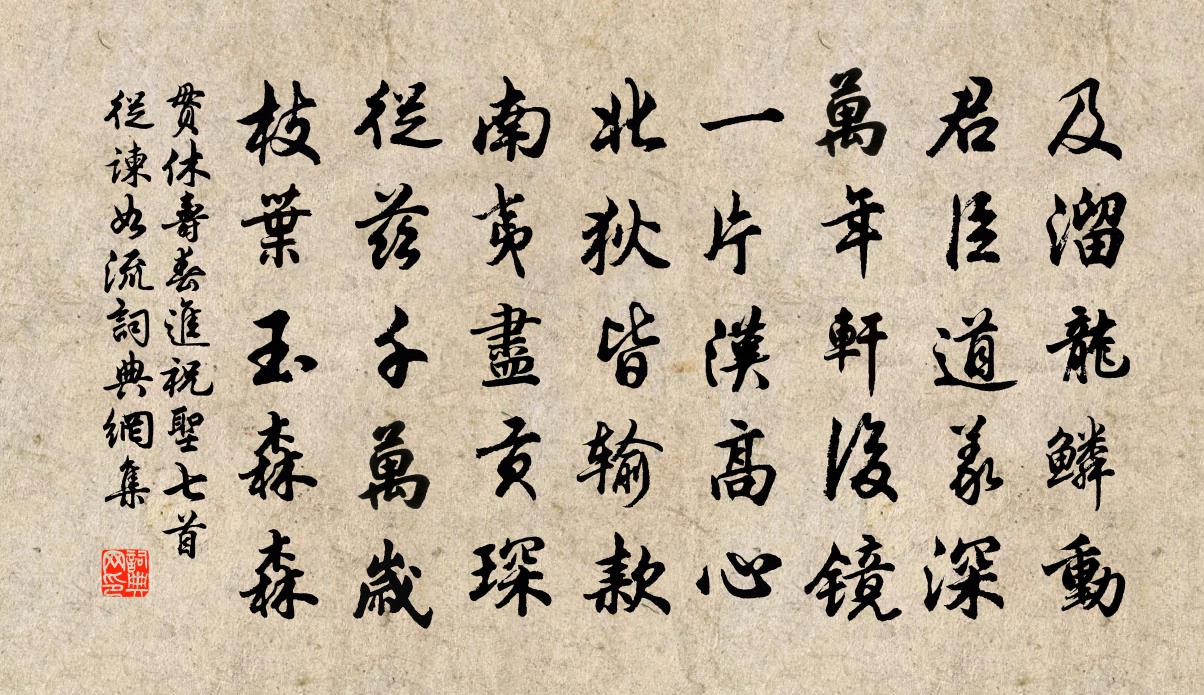 及溜龍鱗動
君臣道義深
萬年軒後鏡
一片漢高心
北狄皆輸款
南夷盡貢琛
從茲千萬歲
枝葉玉森森
貫休壽春進祝聖七首
從諫如流詞典網集
詞典网印